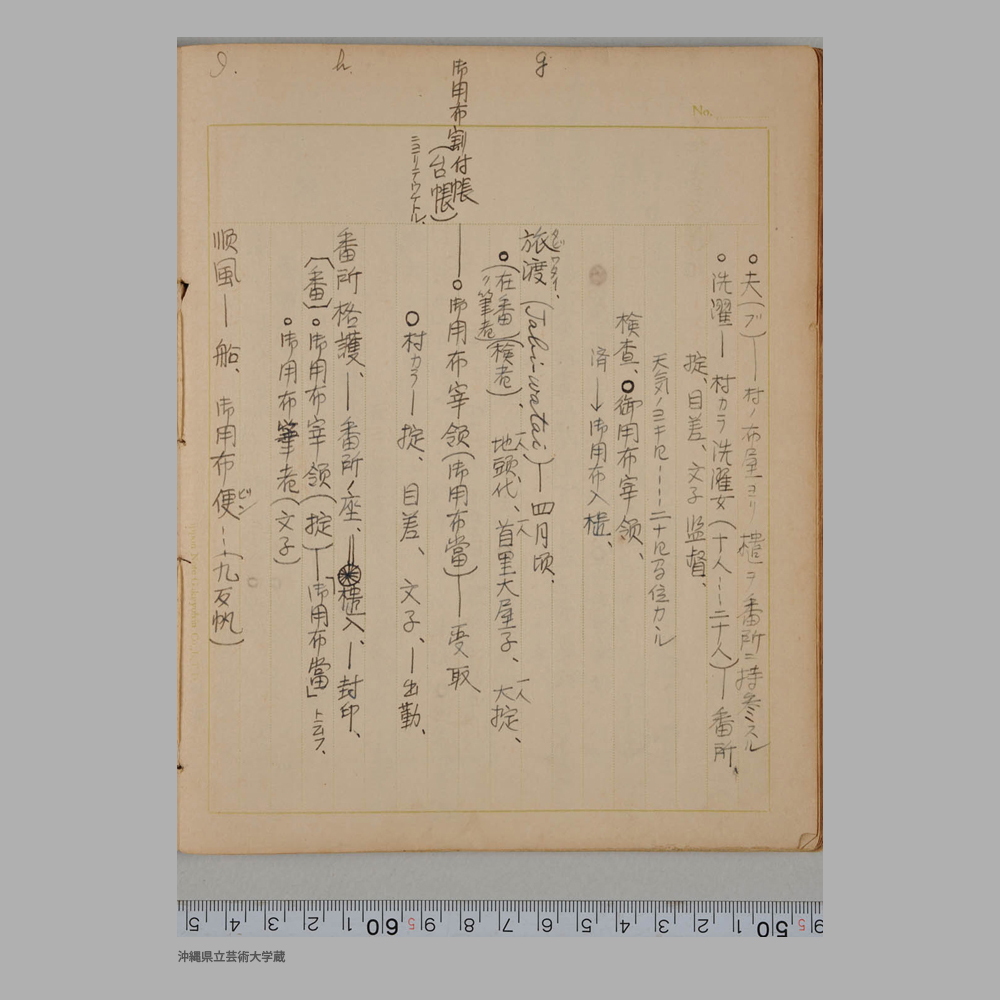 No.
○夫(ブ)―村ノ布屋ヨリ櫃ヲ番所ニ持参スル
○洗濯―村カラ洗濯女(十人……二十人)―番所、
掟、目差、文子 監督、
天気ノヨキ日……二十日乃位カル
検査、○御用布宰領、
済→御用布入櫃、
g
旅渡(タビワタイ、)(Tabi-watai)―四月頃、
○(在番ノ筆者)(検者)、地頭代、一人 首里大屋子、一人 大掟、一人
御用布割付帳―○御用布宰領(御用布當)―受取
(台帳)
ニヨリテウケトル、
○村カラ―掟、目差、文子、―出勤、
h.
番所格護、―番所ノ座、=櫃入、―封印、
(番)○御用布宰領(掟)―「御用布當」ト云フ、
○御用布筆者(文子)
I.
順風―船、御用布便(ビン)……(九反帆)
5 4 3 2 1 60 5 9 8 7 6 5 4 3 2 1 50 5 9
沖縄県立芸術大学蔵